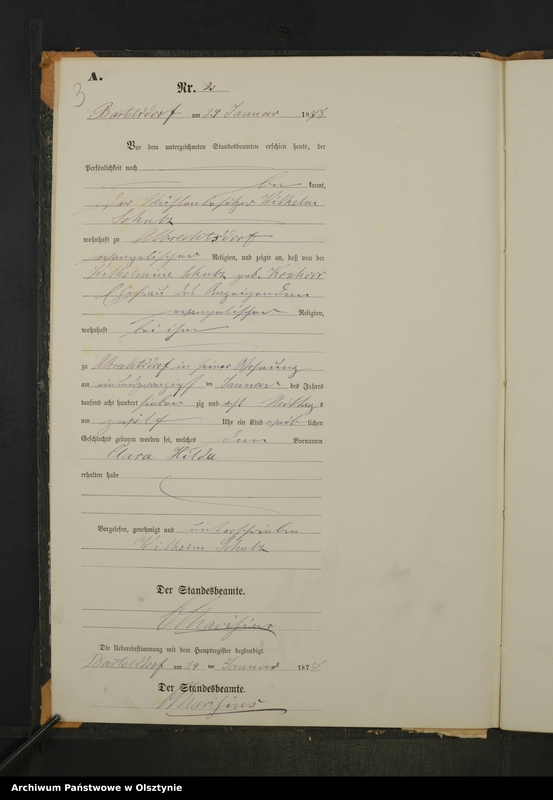 A.
3
Nr. 3
Bartelsdorf am 24 Januar 1878
Vor dem unterzeichneten Standesbeamten erschien heute, der
Persönlichkeit nach
be kannt,
der Mühlenbesitzer Wilhelm
Schulz
wohnhaft zu Albrechtsdorf
evangelischer Religion, und zeigte an, daß von der
Wilhelmine Schulz geb.
Ehefrau des Anzeigenden
evangelischer Religion,
wohnhaft bei ihm
zu Albrechtsdorf in seiner Wohnung
am einundzwanzigst en Januar des Jahres
tausend acht hundert sieben zig und acht Mittags
um zwölf Uhr ein Kind weib lichen
Geschlechts geboren worden sei, welches den Vornamen
Clara Hilda
erhalten habe
Vorgelesen, genehmigt und unterschrieben
Wilhelm Schulz
Der Standesbeamte.
Die Uebereinstimmung mit dem Hauptregister beglaubigt
Bartelsdorf am 24 ten Januar 1878
Der Standesbeamte.
Archiwum Państwowe w Olsztynie